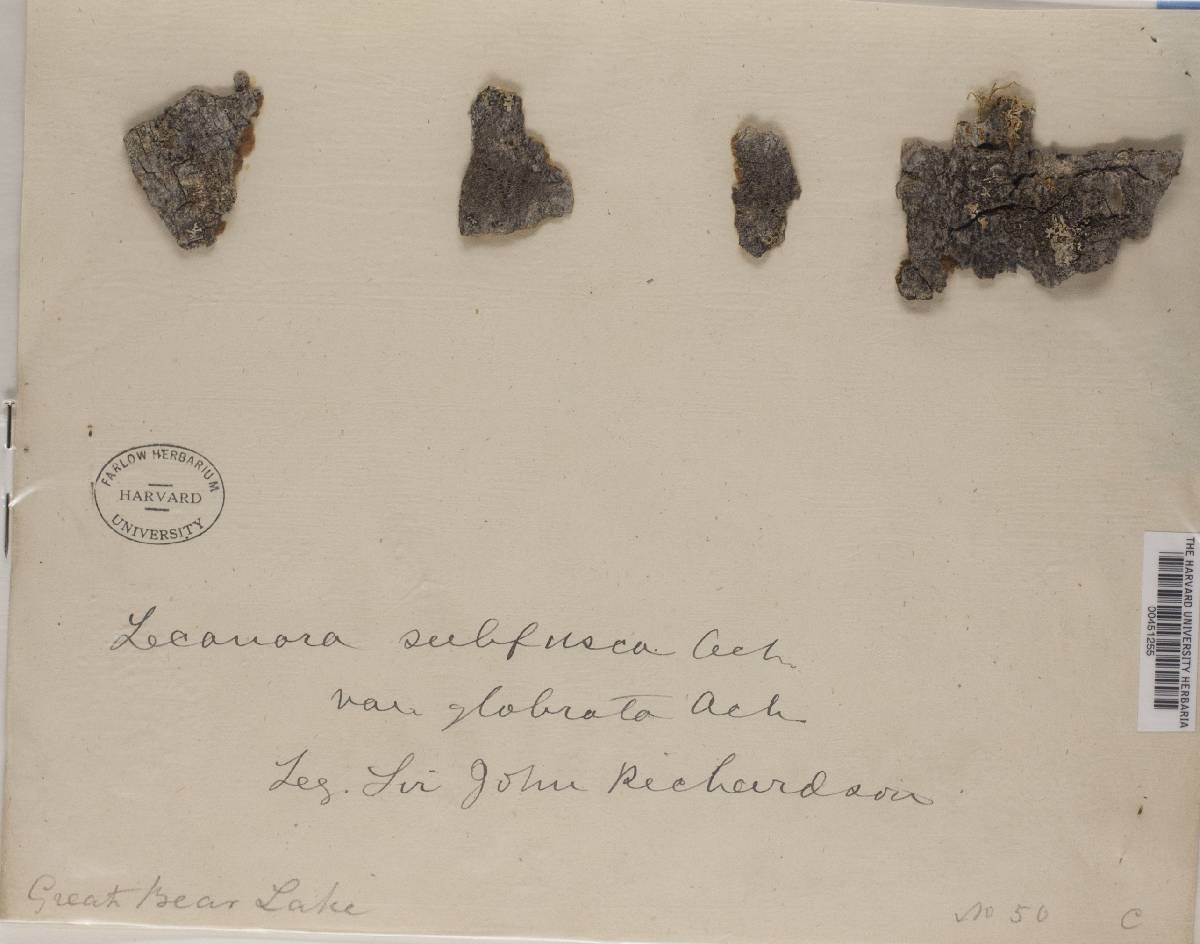 FARLOW HERBARIUM
HARVARD
UNIVERSITY
THE HARVARD UNIVERSITY HERBARIA
00451255
Lecanora subfusca Ach.
var. glabrata Ach
Leg. Sir John Richardson
Great Bear Lake
No 50
C